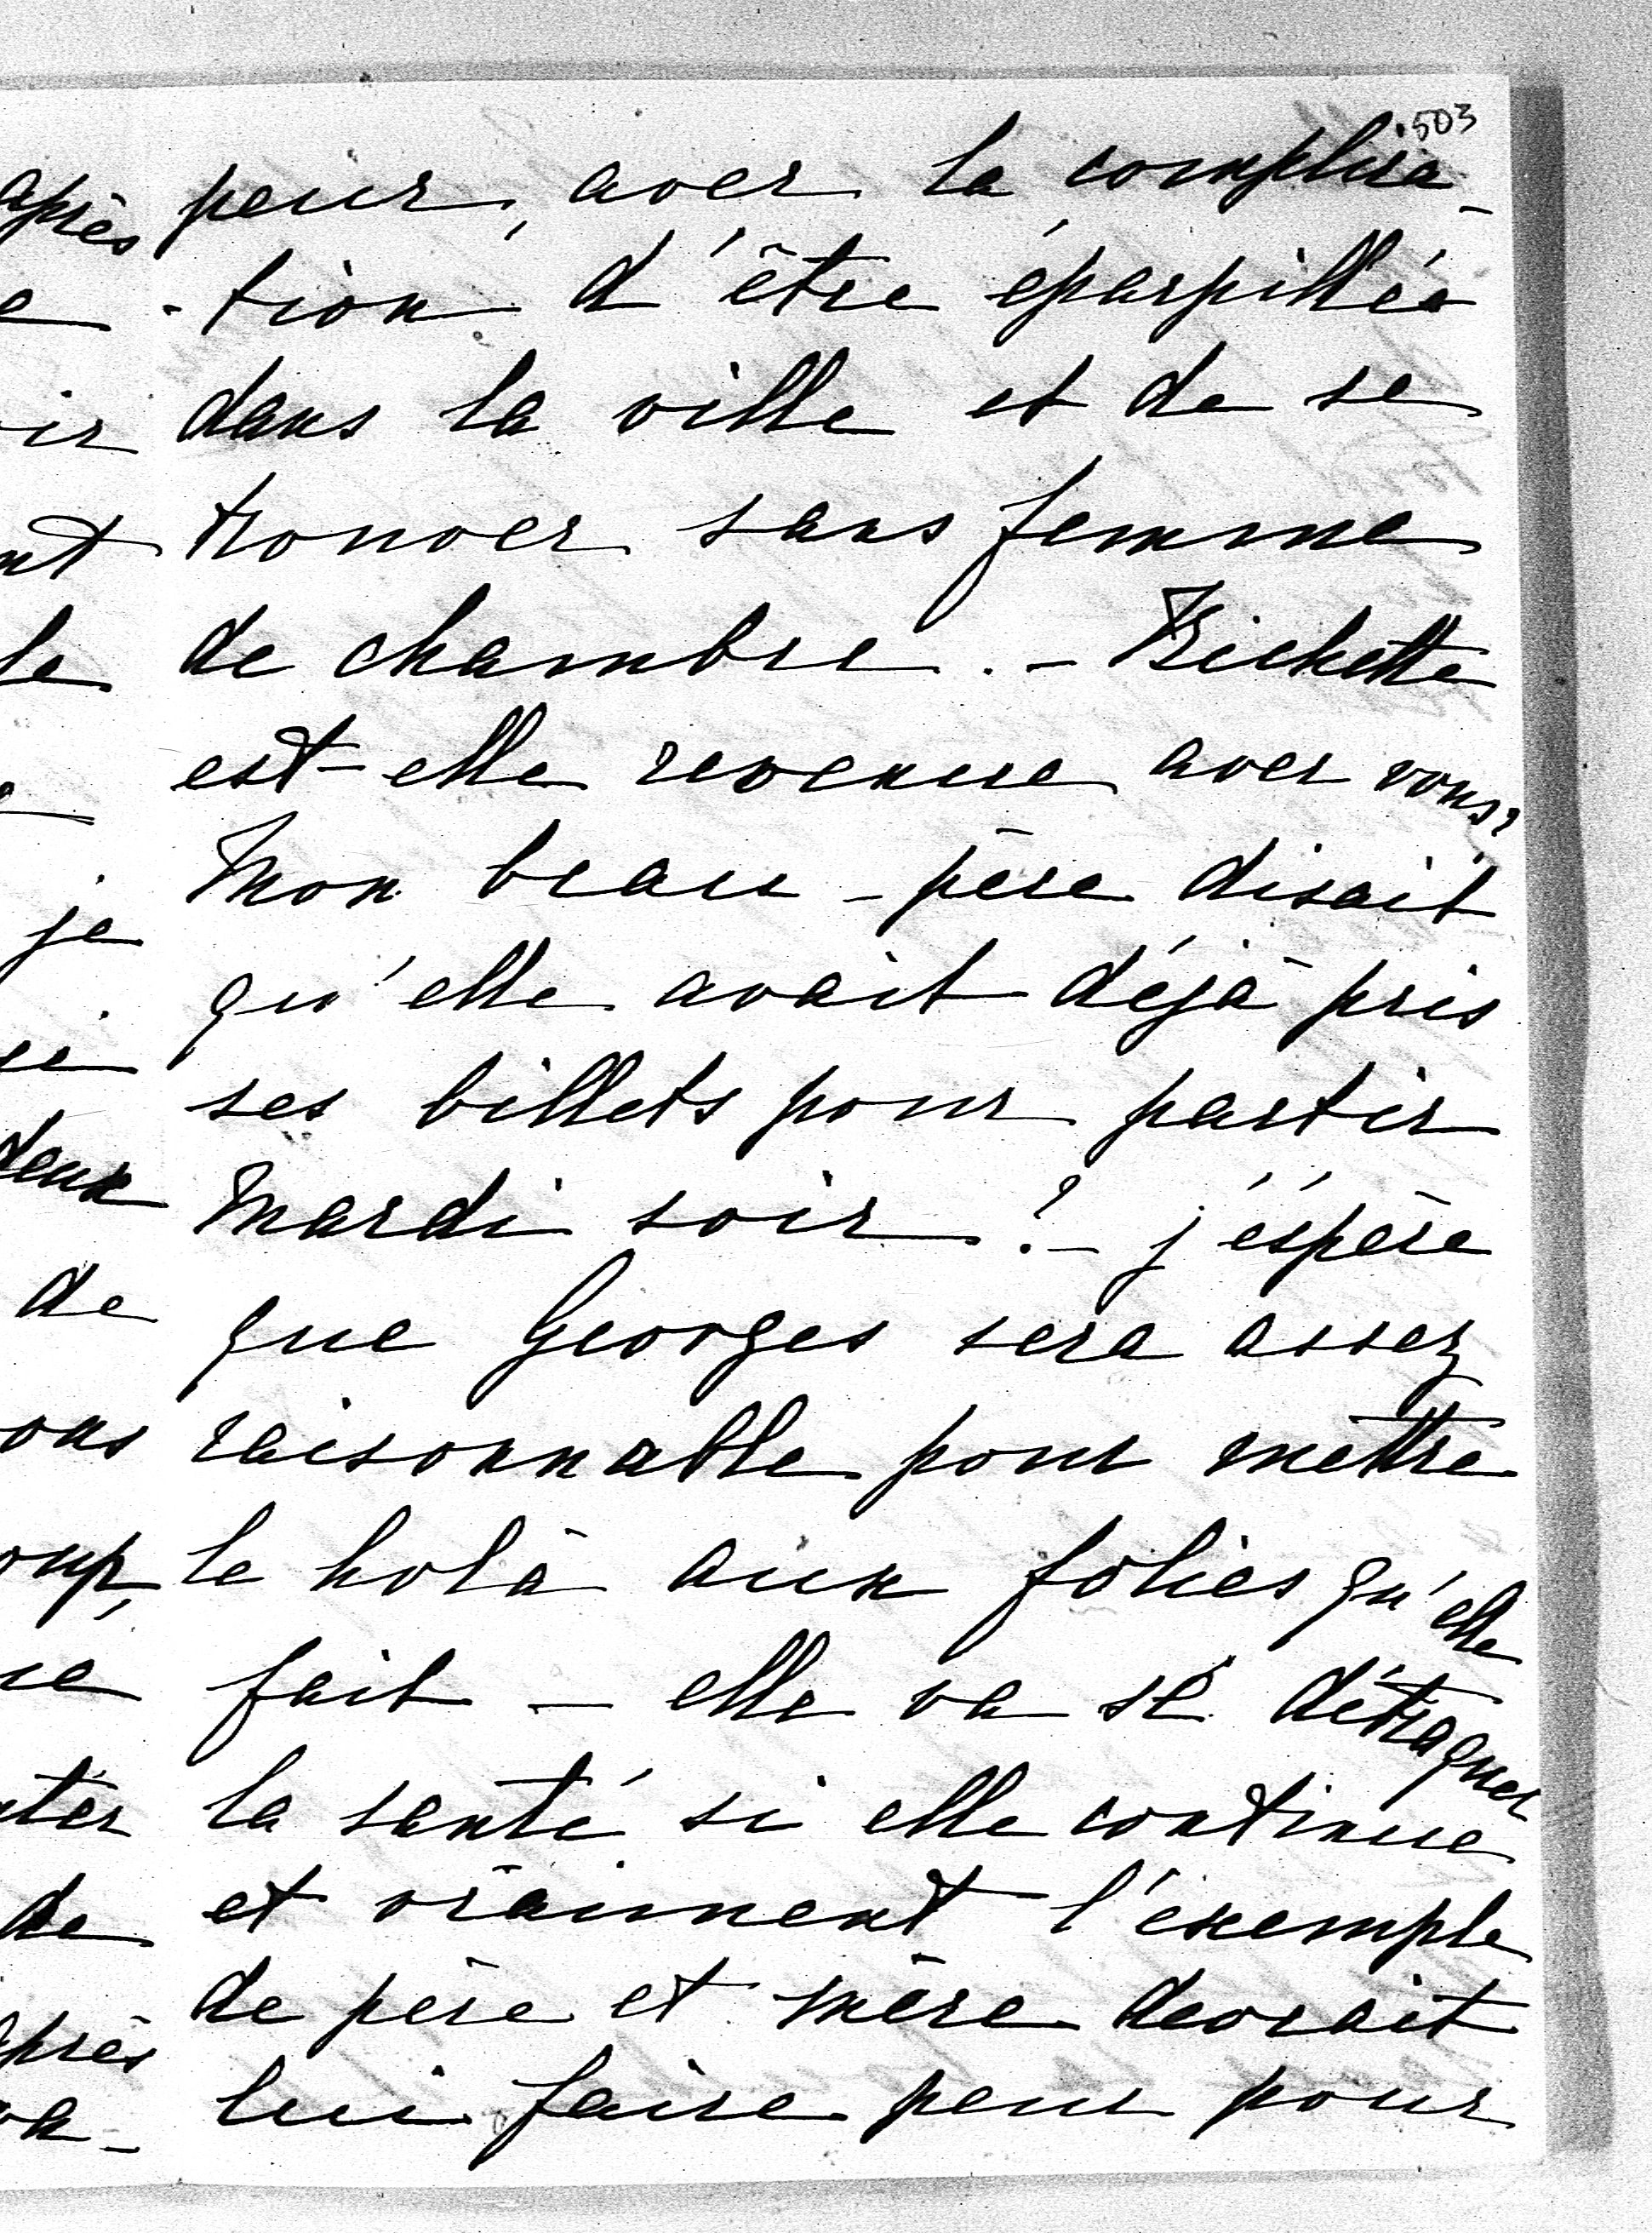 503
peur, avec la complica-
-tion d'être éparpillée
dans la ville et de se
trouver sans femme
de chambre. - Trichette
est-elle revenue avec vous?
Mon beau-père disait
qu'elle avait déjà pris
ses billets pour partir
Mardi soir? - j'éspère
que Georges sera assez
raisonnable pour mettre
le holà aux folies qu'elle
fait - elle va se détraquer
la santé si elle continue
et vraiment l'exemple
de père et mère devrait
lui faire peur pour
après
je
deux
de
de